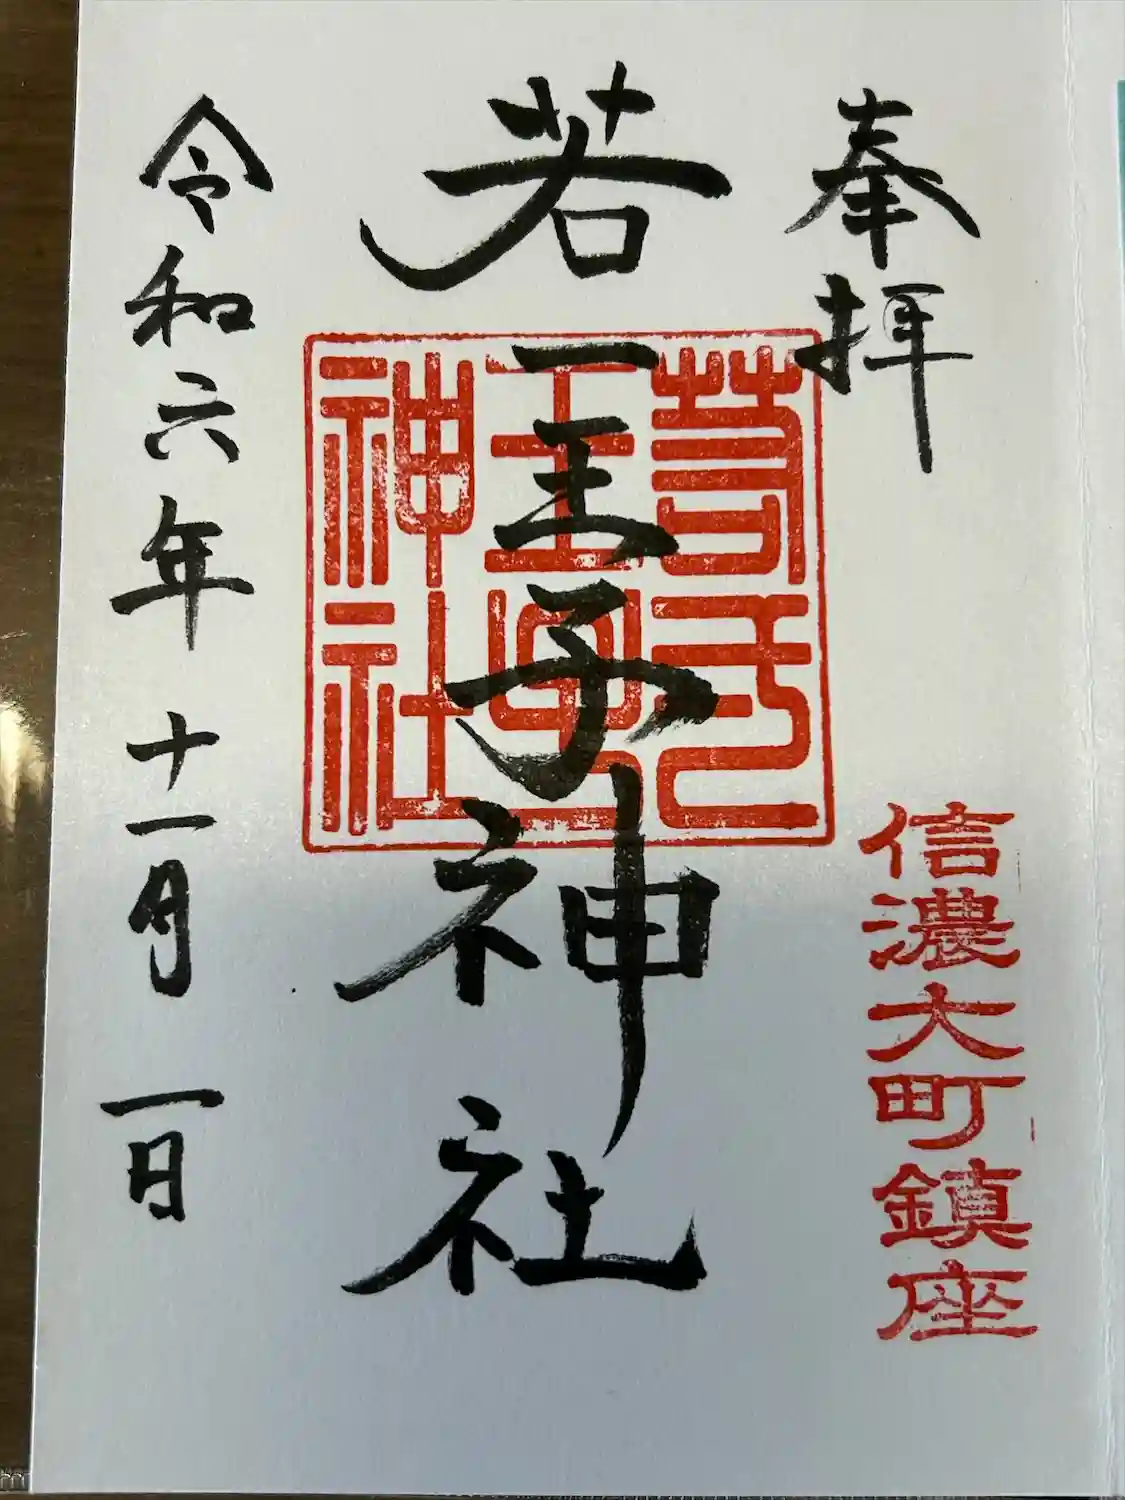 奉拝
信濃大町鎮座
若一王子神社
若
王子
神社
令和六年十一月一日